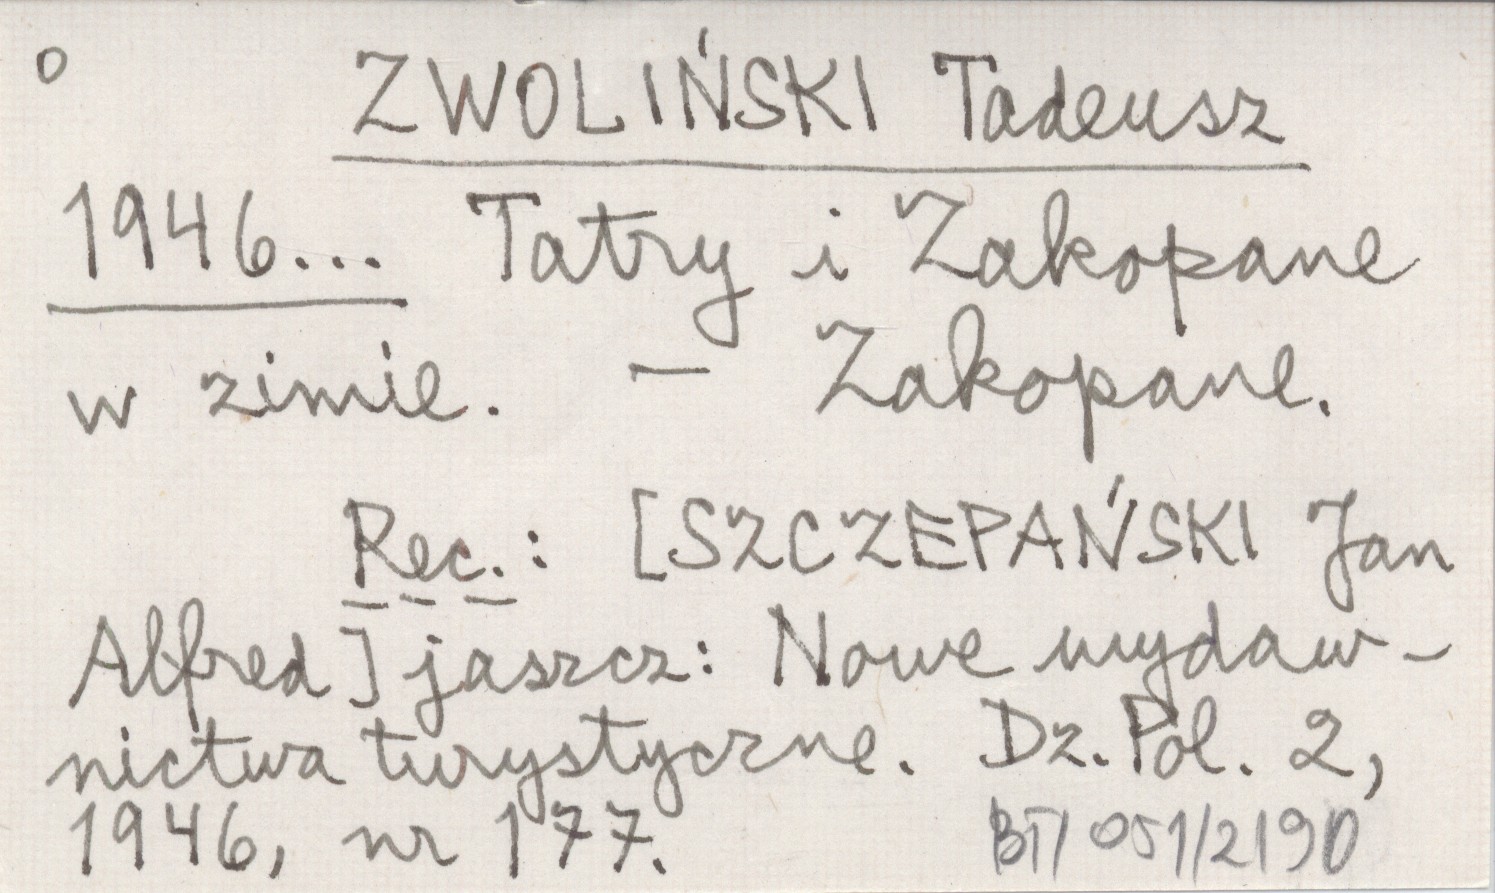 o ZWOLIŃSKI Tadeusz
1946... Tatry i Zakopane
w zimie. – Zakopane.
Rec.: [SZCZEPAŃSKI Jan
Alfred] jaszcz: Nowe wydaw-
nictwa turystyczne. Dz. Pol. 2,
1946, nr 177. BT/051/2190